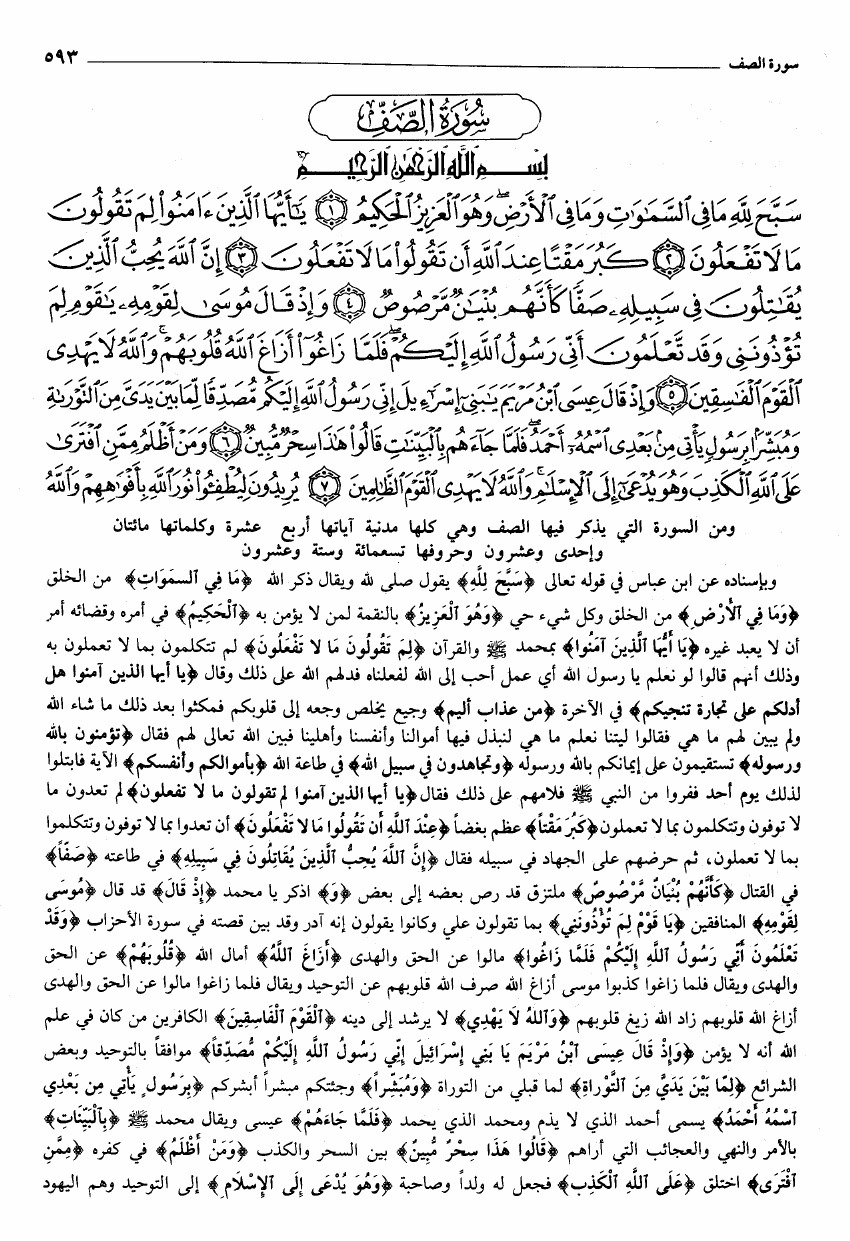 سورة الصف ٥٩٣
سُورَةُ الصَّفِّ
بِسْمِ اللَّهِ الرَّحْمَٰنِ الرَّحِيمِ
سَبَّحَ لِلَّهِ مَا فِي ٱلسَّمَٰوَٰتِ وَمَا فِي ٱلْأَرْضِ ۖ وَهُوَ ٱلْعَزِيزُ ٱلْحَكِيمُ ﴿١﴾ يَٰٓأَيُّهَا ٱلَّذِينَ ءَامَنُوا۟ لِمَ تَقُولُونَ
مَا لَا تَفْعَلُونَ ﴿٢﴾ كَبُرَ مَقْتًا عِندَ ٱللَّهِ أَن تَقُولُوا۟ مَا لَا تَفْعَلُونَ ﴿٣﴾ إِنَّ ٱللَّهَ يُحِبُّ ٱلَّذِينَ
يُقَٰتِلُونَ فِي سَبِيلِهِۦ صَفًّا كَأَنَّهُم بُنْيَٰنٌ مَّرْصُوصٌ ﴿٤﴾ وَإِذْ قَالَ مُوسَىٰ لِقَوْمِهِۦ يَٰقَوْمِ لِمَ
تُؤْذُونَنِي وَقَد تَّعْلَمُونَ أَنِّي رَسُولُ ٱللَّهِ إِلَيْكُمْ ۖ فَلَمَّا زَاغُوٓا۟ أَزَاغَ ٱللَّهُ قُلُوبَهُمْ ۚ وَٱللَّهُ لَا يَهْدِي
ٱلْقَوْمَ ٱلْفَٰسِقِينَ ﴿٥﴾ وَإِذْ قَالَ عِيسَى ٱبْنُ مَرْيَمَ يَٰبَنِيٓ إِسْرَٰٓءِيلَ إِنِّي رَسُولُ ٱللَّهِ إِلَيْكُم مُّصَدِّقًا لِّمَا بَيْنَ يَدَيَّ مِنَ ٱلتَّوْرَىٰةِ
وَمُبَشِّرًۢا بِرَسُولٍ يَأْتِي مِنۢ بَعْدِي ٱسْمُهُۥٓ أَحْمَدُ ۖ فَلَمَّا جَآءَهُم بِٱلْبَيِّنَٰتِ قَالُوا۟ هَٰذَا سِحْرٌ مُّبِينٌ ﴿٦﴾ وَمَنْ أَظْلَمُ مِمَّنِ ٱفْتَرَىٰ
عَلَى ٱللَّهِ ٱلْكَذِبَ وَهُوَ يُدْعَىٰٓ إِلَى ٱلْإِسْلَٰمِ ۚ وَٱللَّهُ لَا يَهْدِي ٱلْقَوْمَ ٱلظَّٰلِمِينَ ﴿٧﴾ يُرِيدُونَ لِيُطْفِـُٔوا۟ نُورَ ٱللَّهِ بِأَفْوَٰهِهِمْ وَٱللَّهُ
ومن السورة التي يذكر فيها الصف وهي كلها مدنية آياتها أربع عشرة وكلماتها مائتان
وإحدى وعشرون وحروفها تسعمائة وستة وعشرون
وبإسناده عن ابن عباس في قوله تعالى ﴿سَبَّحَ لِلَّهِ﴾ يقول صلى لله ويقال ذكر الله ﴿مَا فِي ٱلسَّمَوَاتِ﴾ من الخلق
﴿وَمَا فِي ٱلْأَرْضِ﴾ من الخلق وكل شيء حي ﴿وَهُوَ ٱلْعَزِيزُ﴾ بالنقمة لمن لا يؤمن به ﴿ٱلْحَكِيمُ﴾ في أمره وقضائه أمر
أن لا يعبد غيره ﴿يَا أَيُّهَا ٱلَّذِينَ آمَنُوا﴾ بمحمد ﷺ والقرآن ﴿لِمَ تَقُولُونَ مَا لَا تَفْعَلُونَ﴾ لم تتكلمون بما لا تعملون به
وذلك أنهم قالوا لو نعلم يا رسول الله أي عمل أحب إلى الله لفعلناه فدلهم الله على ذلك وقال ﴿يا أيها الذين آمنوا هل
أدلكم على تجارة تنجيكم﴾ في الآخرة ﴿من عذاب أليم﴾ وجيع يخلص وجعه إلى قلوبكم فمكثوا بعد ذلك ما شاء الله
ولم يبين لهم ما هي فقالوا ليتنا نعلم ما هي لنبذل فيها أموالنا وأنفسنا وأهلينا فبين الله تعالى لهم فقال ﴿تؤمنون بالله
ورسوله﴾ تستقيمون على إيمانكم بالله ورسوله ﴿وتجاهدون في سبيل الله﴾ في طاعة الله ﴿بأموالكم وأنفسكم﴾ الآية فابتلوا
لذلك يوم أحد ففروا من النبي ﷺ فلامهم على ذلك فقال ﴿يا أيها الذين آمنوا لم تقولون ما لا تفعلون﴾ لم تعدون ما
لا توفون وتتكلمون بما لا تعملون ﴿كَبُرَ مَقْتاً﴾ عظم بغضاً ﴿عِنْدَ ٱللَّهِ أَن تَقُولُوا مَا لَا تَفْعَلُونَ﴾ أن تعدوا بما لا توفون وتتكلموا
بما لا تعملون، ثم حرضهم على الجهاد في سبيله فقال ﴿إِنَّ ٱللَّهَ يُحِبُّ ٱلَّذِينَ يُقَاتِلُونَ فِي سَبِيلِهِ﴾ في طاعته ﴿صَفًّا﴾
في القتال ﴿كَأَنَّهُمْ بُنْيَانٌ مَّرْصُوصٌ﴾ ملتزق قد رص بعضه إلى بعض ﴿وَ﴾ اذكر يا محمد ﴿إِذْ قَالَ﴾ قد قال ﴿مُوسَى
لِقَوْمِهِ﴾ المنافقين ﴿يَا قَوْمِ لِمَ تُؤْذُونَنِي﴾ بما تقولون علي وكانوا يقولون إنه آدر وقد بين قصته في سورة الأحزاب ﴿وَقَدْ
تَعْلَمُونَ أَنِّي رَسُولُ ٱللَّهِ إِلَيْكُمْ فَلَمَّا زَاغُوا﴾ مالوا عن الحق والهدى ﴿أَزَاغَ ٱللَّهُ﴾ أمال الله ﴿قُلُوبَهُمْ﴾ عن الحق
والهدى ويقال فلما زاغوا كذبوا موسى أزاغ الله صرف الله قلوبهم عن التوحيد ويقال فلما زاغوا مالوا عن الحق والهدى
أزاغ الله قلوبهم زاد الله زيغ قلوبهم ﴿وَٱللَّهُ لَا يَهْدِي﴾ لا يرشد إلى دينه ﴿ٱلْقَوْمَ ٱلْفَاسِقِينَ﴾ الكافرين من كان في علم
الله أنه لا يؤمن ﴿وَإِذْ قَالَ عِيسَى ٱبْنُ مَرْيَمَ يَا بَنِي إِسْرَائِيلَ إِنِّي رَسُولُ ٱللَّهِ إِلَيْكُمْ مُّصَدِّقاً﴾ موافقاً بالتوحيد وبعض
الشرائع ﴿لِمَا بَيْنَ يَدَيَّ مِنَ ٱلتَّوْرَاةِ﴾ لما قبلي من التوراة ﴿وَمُبَشِّراً﴾ وجئتكم مبشراً أبشركم ﴿بِرَسُولٍ يَأْتِي مِن بَعْدِي
ٱسْمُهُ أَحْمَدُ﴾ يسمى أحمد الذي لا يذم ومحمد الذي يحمد ﴿فَلَمَّا جَاءَهُمْ﴾ عيسى ويقال محمد ﷺ ﴿بِٱلْبَيِّنَاتِ﴾
بالأمر والنهي والعجائب التي أراهم ﴿قَالُوا هَذَا سِحْرٌ مُّبِينٌ﴾ بين السحر والكذب ﴿وَمَنْ أَظْلَمُ﴾ في كفره ﴿مِمَّنِ
ٱفْتَرَى﴾ اختلق ﴿عَلَى ٱللَّهِ ٱلْكَذِبَ﴾ فجعل له ولداً وصاحبة ﴿وَهُوَ يُدْعَى إِلَى ٱلْإِسْلَامِ﴾ إلى التوحيد وهم اليهود